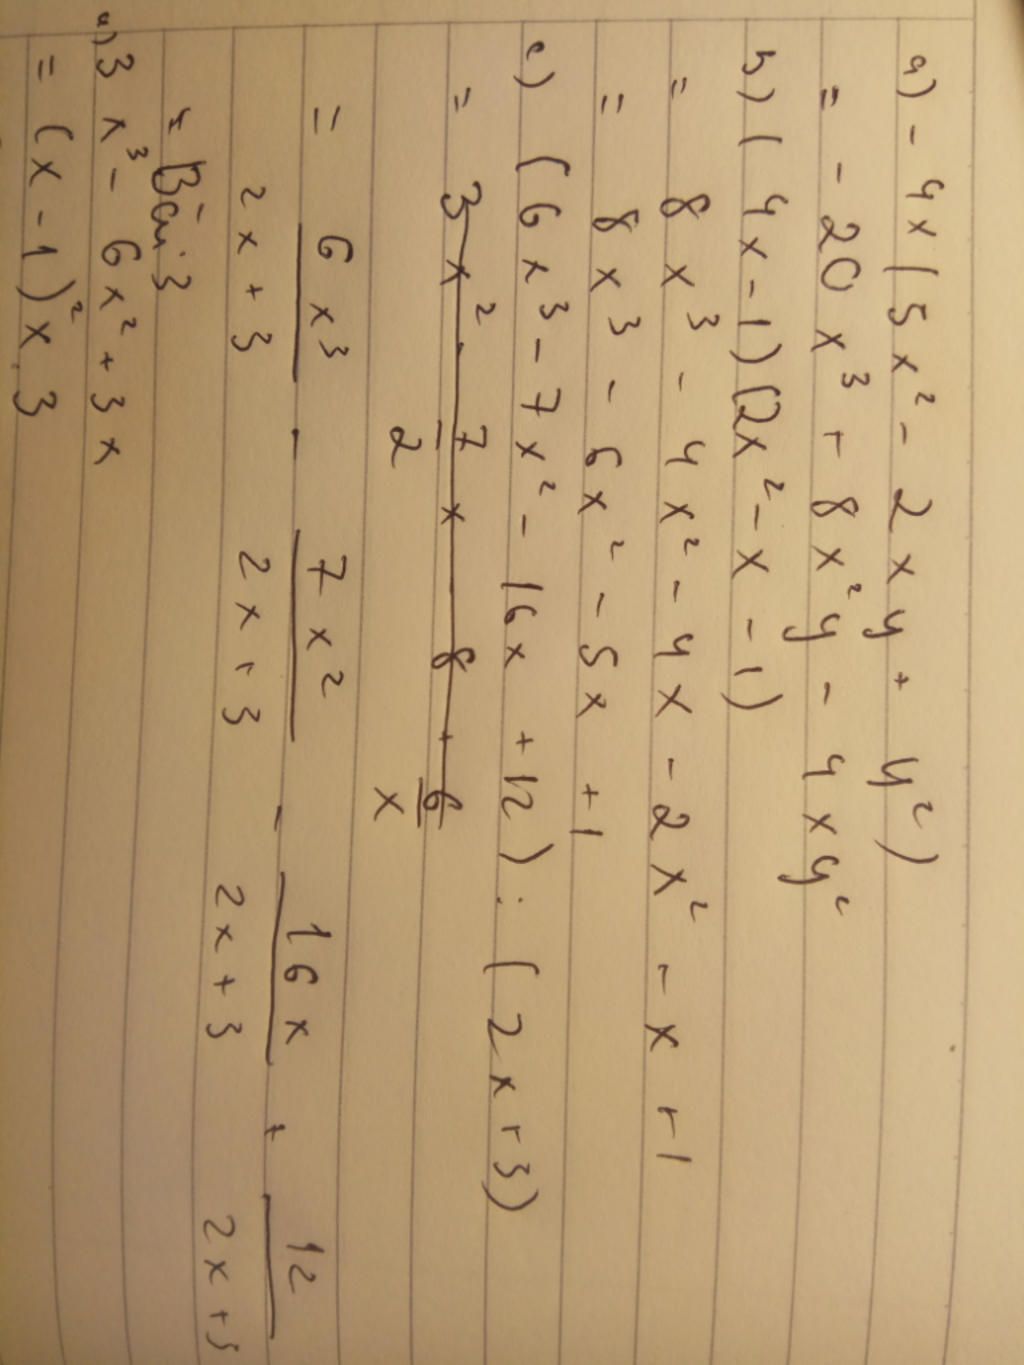 a) - 4x(5x² - 2xy + y²)
= - 20x³ + 8x²y - 4xy²
b) (4x - 1)(2x² - x - 1)
= 8x³ - 4x² - 4x - 2x² - x + 1
= 8x³ - 6x² - 5x + 1
c) (6x³ - 7x² - 16x + 12) : (2x + 3)
= 3x² - 7/2 x - 8 + 6/x
= 6x³/2x+3 - 7x²/2x+3 - 16x/2x+3 + 12/2x+3
* Bài 3
a) 3x³ - 6x² + 3x
= (x - 1)²x.3